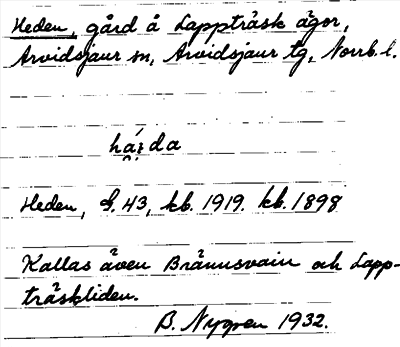 Heden, gård å Lappträsk ägor,
Arvidsjaur sn, Arvidsjaur tg, Norrb. l.
Heden, G. 43, kb. 1919. kb. 1898
Kallas även Brännsvain och Lapp-
träskliden.
B. Nygren 1932.